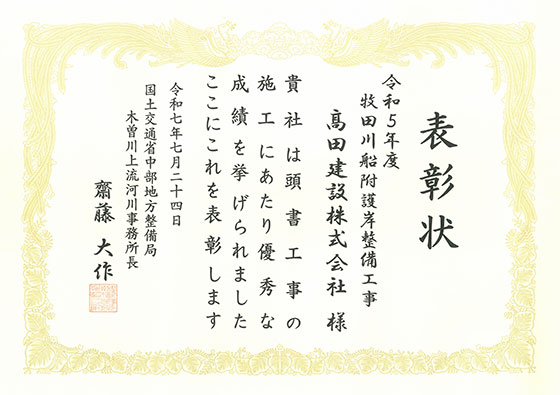 表彰状
令和5年度
牧田川船附護岸整備工事
髙田建設株式会社 様
貴社は頭書工事の
施工にあたり優秀な
成績を挙げられました
ここにこれを表彰します
令和七年七月二十四日
国土交通省中部地方整備局
木曽川上流河川事務所長
齋藤 大作